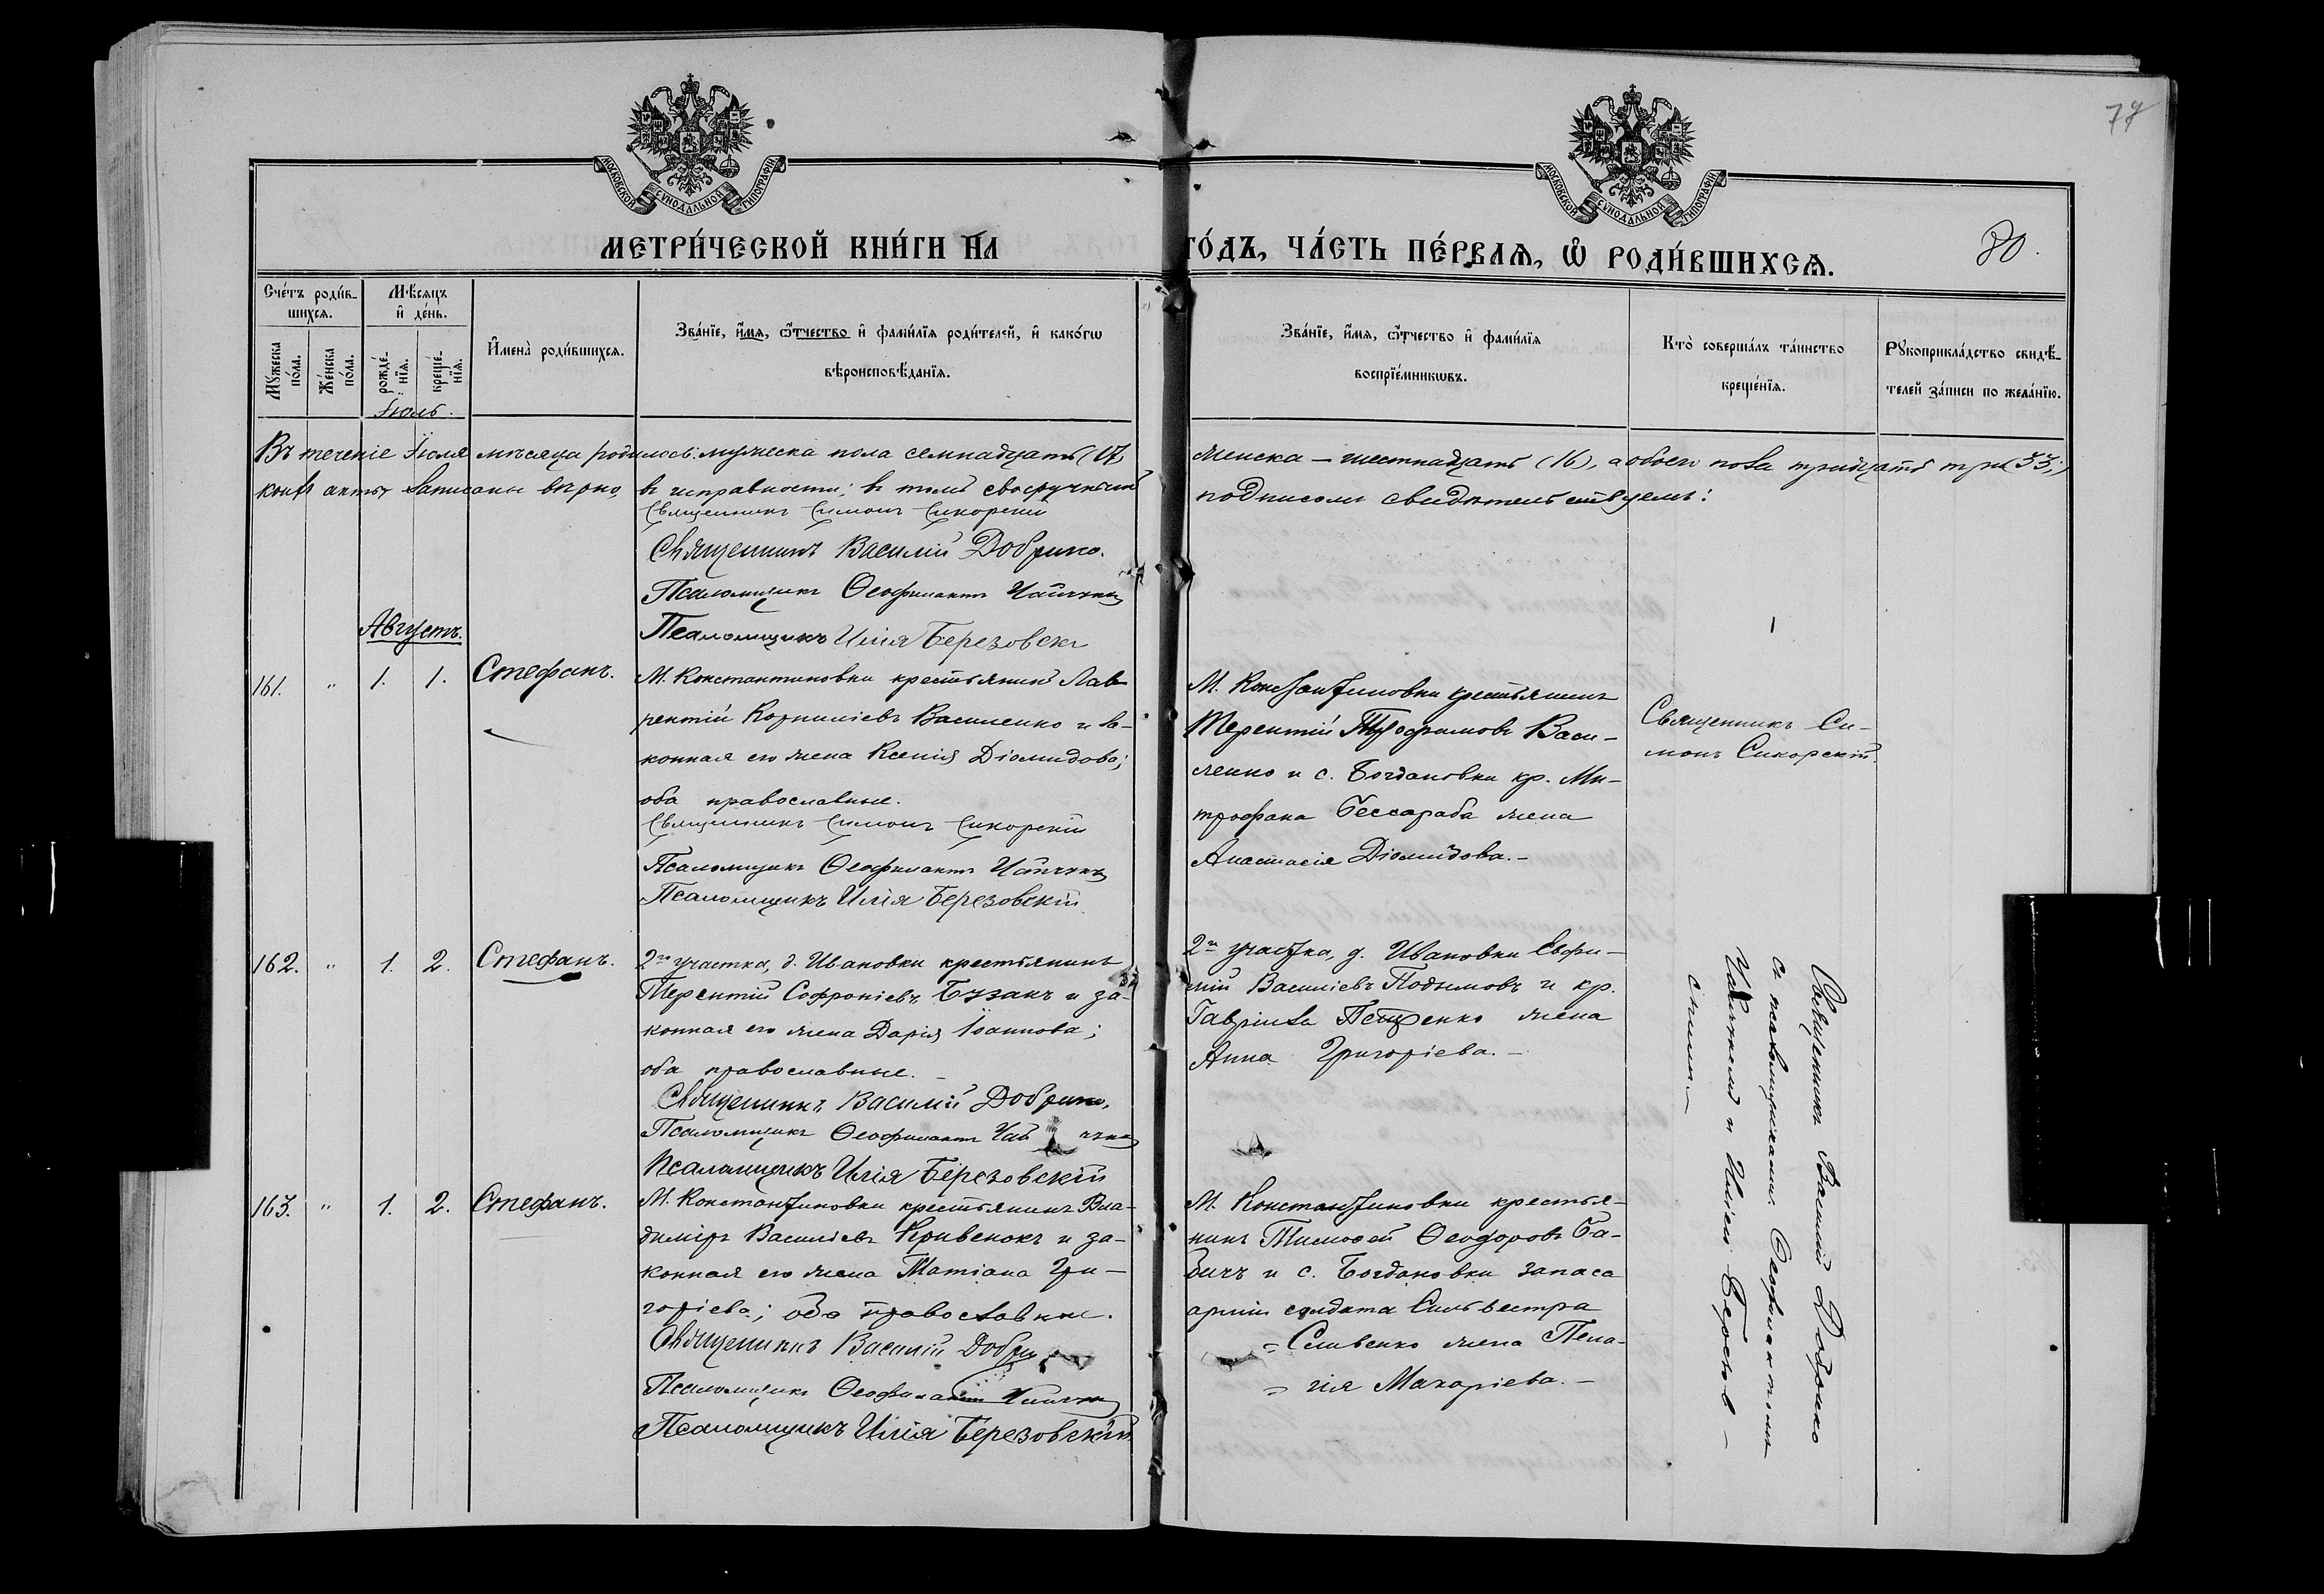 77
80.
МОСКОВСКОЙ СѴНОДАЛЬНОЙ ТИПОГРАФІИ
МОСКОВСКОЙ СѴНОДАЛЬНОЙ ТИПОГРАФІИ
МЕТРИ́ЧЕСКОЙ КНИ́ГИ НА
ГО́ДЪ, ЧА́СТЬ ПЕ́РВАѦ, Ѡ҆ РОДИ́ВШИХСѦ.
Сче́тъ роди́в-
шихсѧ.
Мѣ́сѧцъ
и҆ де́нь.
Мꙋ́жеска
по́ла.
Же́нска
по́ла.
рожде́-
нїѧ.
креще́-
нїѧ.
И҆мена̀ роди́вшихсѧ.
Зва́нїе, и҆́мѧ, ѻ҆́тчество и҆ фами́лїѧ роди́телей, и҆ како́гѡ
вѣроисповѣ́данїѧ.
Зва́нїе, и҆́мѧ, ѻ҆́тчество и҆ фами́лїѧ
воспрїе́мникѡвъ.
Кто̀ соверша́лъ та́инство
креще́нїѧ.
Рꙋкоприкла́дство свидѣ́-
телей за́писи по жела́нїю.
Іюль.
Въ теченіе Іюля мѣсяца родилось: мужеска пола семнадцать (17)
женска – шестнадцать (16), а обоего пола тридцать три (33;)
акты записаны вѣрно, въ исправности; въ томъ своеручнымъ
подписомъ свидѣтельствуемъ:
Священникъ Симонъ Сикорскій
Священникъ Василій Добрико.
Псаломщикъ Ѳеофилактъ
Псаломщикъ Илія Березовскі
Августъ.
161. " 1. 1. Стефанъ.
М. Константиновки крестьянинъ Лав-
рентій Корниліевъ Василенко и за-
конная его жена Ксенія Діомидова;
оба православные.
Священникъ Симонъ Сикорскій
Псаломщикъ Ѳеофилактъ
Псаломщикъ Илія Березовскій
М. Константиновки крестьянинъ
Терентій Трофимовъ Васи-
ленко и с. Богдановки кр. Ми-
трофана Бессараба жена
Анастасія Діомидова. –
Священникъ Си-
монъ Сикорскій.
162. " 1. 2. Стефанъ.
2го участка, д. Ивановки крестьянинъ
Терентій Софроніевъ Бузакъ и за-
конная его жена Дарія Іоаннова;
оба православные. –
Священникъ Василій Добрико.
Псаломщикъ Ѳеофилактъ
Псаломщикъ Илія Березовскій
2го участка, д. Ивановки Евфи-
мій Василіевъ Подымовъ и кр.
Гавріила жена
Анна Григоріева. –
163. " 1. 2. Стефанъ.
М. Константиновки крестьянинъ Вла-
диміръ Василіевъ Кривенокъ и за-
конная его жена Татіана Гри-
горіева; оба православные.
Священникъ Василій
Псаломщикъ Ѳеофилактъ
Псаломщикъ Илія Березовскій
М. Константиновки крестья-
нинъ Тимофей Ѳеодоровъ Ба-
бичъ и с. Богдановки запаса
арміи солдата Сильвестра
= Сливенко жена Пела-
= гія Макаріева. –
Священникъ Василій Добрико
съ псаломщиками: Ѳеофилактомъ
и Иліею Березов-
скимъ. –